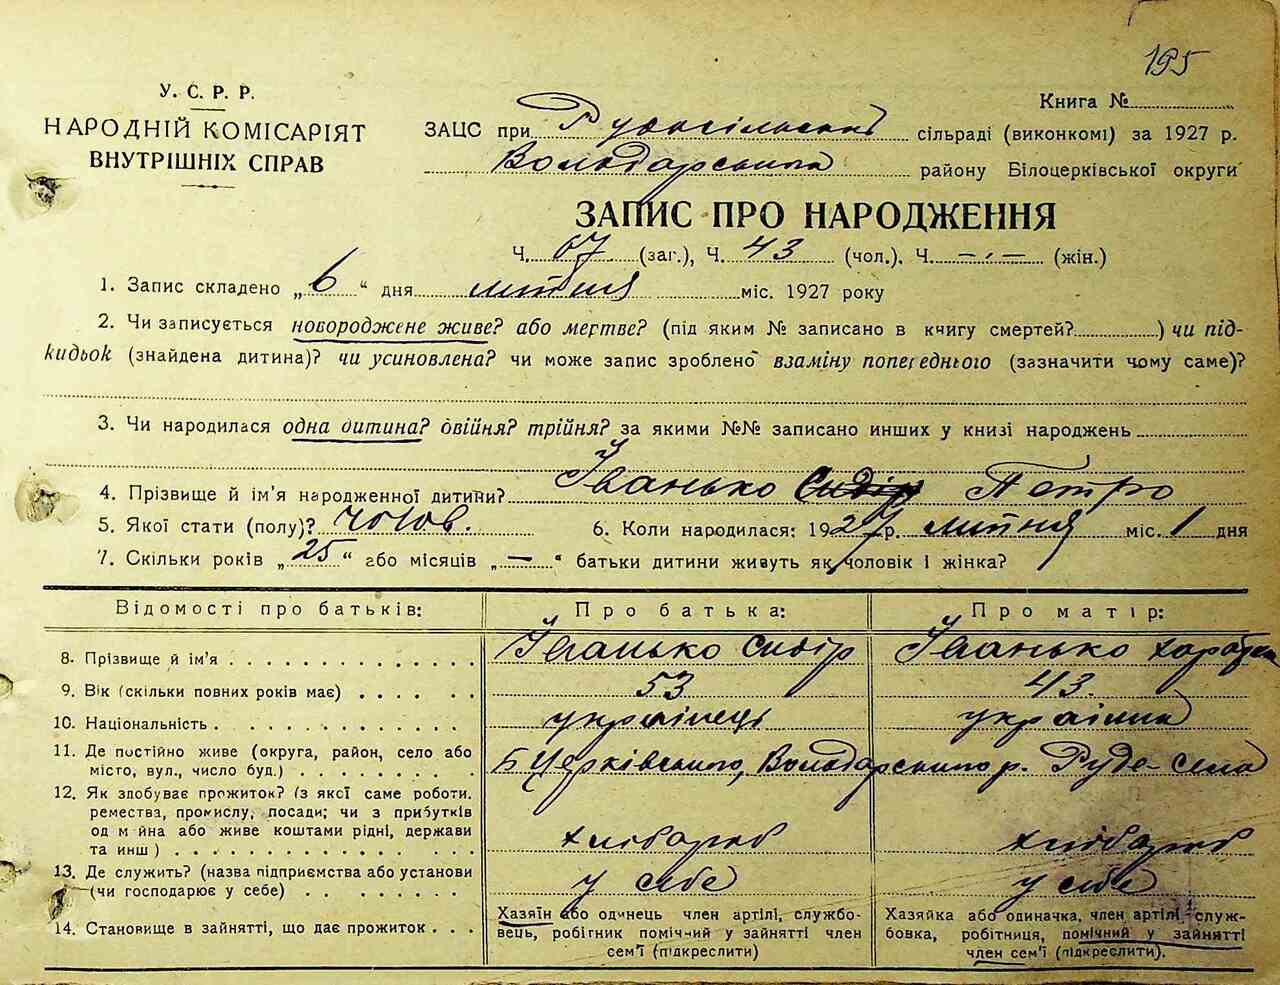 195
У. С. Р. Р.
НАРОДНІЙ КОМІСАРІЯТ
ВНУТРІШНІХ СПРАВ
Книга №
ЗАЦС при Рудосільській сільраді (виконкомі) за 1927 р.
Володарського району Білоцерківської округи
ЗАПИС ПРО НАРОДЖЕННЯ
Ч. 67 (заг.), Ч. 43 (чол.), Ч. — (жін.)
1. Запис складено „6“ дня липня міс. 1927 року
2. Чи записується новороджене живе? або мертве? (під яким № записано в книгу смертей?) чи під-
кидьок (знайдена дитина)? чи усиновлена? чи може запис зроблено взаміну попереднього (зазначити чому саме)?
3. Чи народилася одна дитина? двійня? трійня? за якими №№ записано инших у книзі народжень
4. Прізвище й ім'я народженної дитини? Іванько Сидір Петро
5. Якої стати (полу)? чолов. 6. Коли народилася: 1927 р. липня міс. 1 дня
7. Скільки років „25“ або місяців „—“ батьки дитини живуть як чоловік і жінка?
Відомості про батьків: Про батька: Про матір:
8. Прізвище й ім'я Іванько Сидір Іванько
9. Вік (скільки повних років має) 53 43.
10. Національність українець українка
11. Де постійно живе (округа, район, село або
місто, вул., число буд.) Б Церківського, Володарського р. Руде-Село
12. Як здобуває прожиток? (з якої саме роботи,
ремества, промислу, посади; чи з прибутків
од майна або живе коштами рідні, держави
та инш) хлібороб хлібороб
13. Де служить? (назва підприємства або установи
(чи господарює у себе) у себе у себе
14. Становище в зайнятті, що дає прожиток
Хазяїн або одинець член артілі, службо-
вець, робігник помічний у зайнятті член
сем'ї (підкреслити)
Хазяйка або одиначка, член артілі, служ-
бовка, робітниця, помічний у зайнятті
член сем'ї (підкреслити).